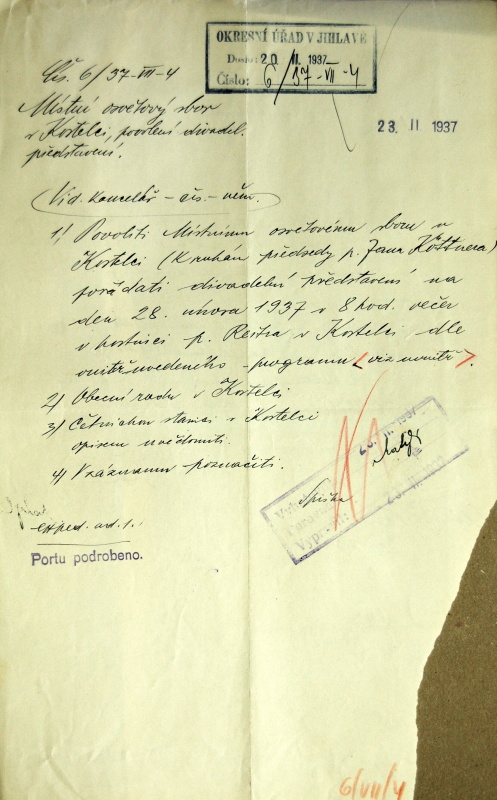 OKRESNÍ ÚŘAD V JIHLAVĚ
Došlo: 20 II. 1937
Číslo: 6/37-VII-4
Čís. 6/37-VII-4
23. II 1937
Místní osvětový sbor
v Kostelci, povolení divadel.
představení.
Vid. kancelář - čís. - něm.
1/ Povoliti Místnímu osvětovému sboru v
Kostelci (K rukám předsedy p. Jana Köttnera)
pořádati divadelní představení na
den 28. února 1937 v 8 hod. večer
v hostinci p. v Kostelci dle
uvnitř uvedeného programu <viz uvnitř>.
2/ Obecní radu v Kostelci
3/ Četnickou stanici v Kostelci
opisem uvědomiti.
4/ V záznamu poznačiti.
23. II. 1937
exped. ad. 1.
Portu podrobeno.
6/VII/4